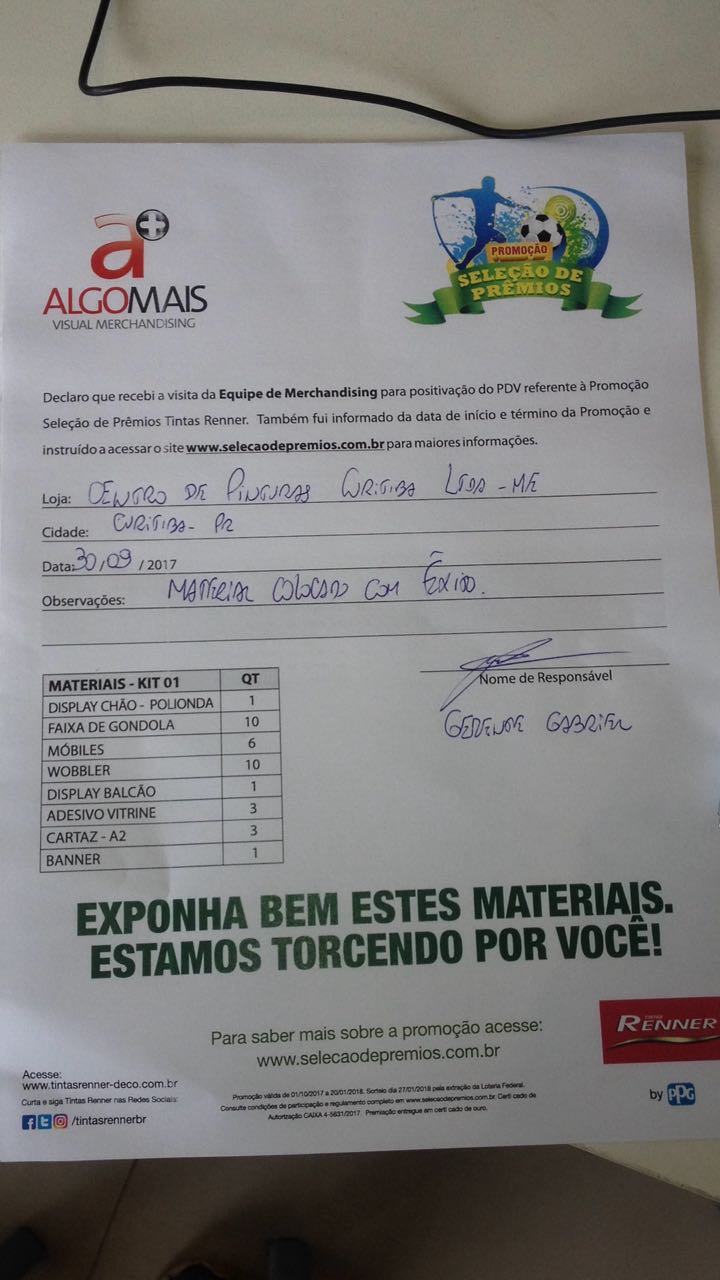 a+
ALGOMAIS
VISUAL MERCHANDISING
PROMOÇÃO
SELEÇÃO DE
PRÊMIOS
Declaro que recebi a visita da Equipe de Merchandising para positivação do PDV referente à Promoção
Seleção de Prêmios Tintas Renner. Também fui informado da data de início e término da Promoção e
instruído a acessar o site www.selecaodepremios.com.br para maiores informações.
Loja: CENTRO DE PINTURAS CURITIBA LTDA - ME
Cidade: CURITIBA - PR
Data: 30/09/2017
Observações: MATERIAL COLOCADO COM ÊXITO.
Nome de Responsável
GERENTE GABRIEL
MATERIAIS - KIT 01 QT
DISPLAY CHÃO - POLIONDA 1
FAIXA DE GONDOLA 10
MÓBILES 6
WOBBLER 10
DISPLAY BALCÃO 1
ADESIVO VITRINE 3
CARTAZ - A2 3
BANNER 1
EXPONHA BEM ESTES MATERIAIS.
ESTAMOS TORCENDO POR VOCÊ!
Para saber mais sobre a promoção acesse:
www.selecaodepremios.com.br
TINTAS
RENNER
by PPG
Acesse:
www.tintasrenner-deco.com.br
Curta e siga Tintas Renner nas Redes Sociais:
/tintasrennerbr
Promoção válida de 01/10/2017 a 20/01/2018. Sorteio dia 27/01/2018 pela extração da Loteria Federal.
Consulte condições de participação e regulamento completo em www.selecaodepremios.com.br. Certi cado de
Autorização CAIXA 4-5631/2017. Premiação entregue em certi cado de ouro.